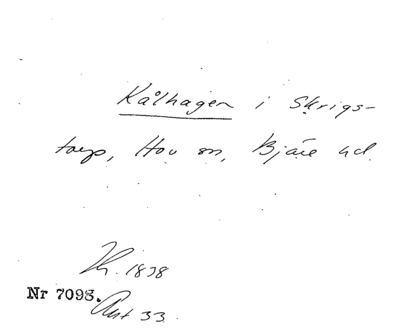 Kålhagen i Skrigs-
torp, Hov sn, Bjäre hd.
1838
Nr 7098.
Art 33.